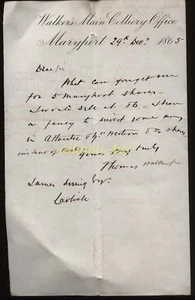 Walker's Main Colliery Office
Maryport 29th Decr 1865
Dear Sir
What can you get me
for 5 Maryport shares
I would sell at 86 – I have
a fancy to invest some money
in Atlantic &
instead of
Yours very truly
Thomas
James Esqr
Carlisle